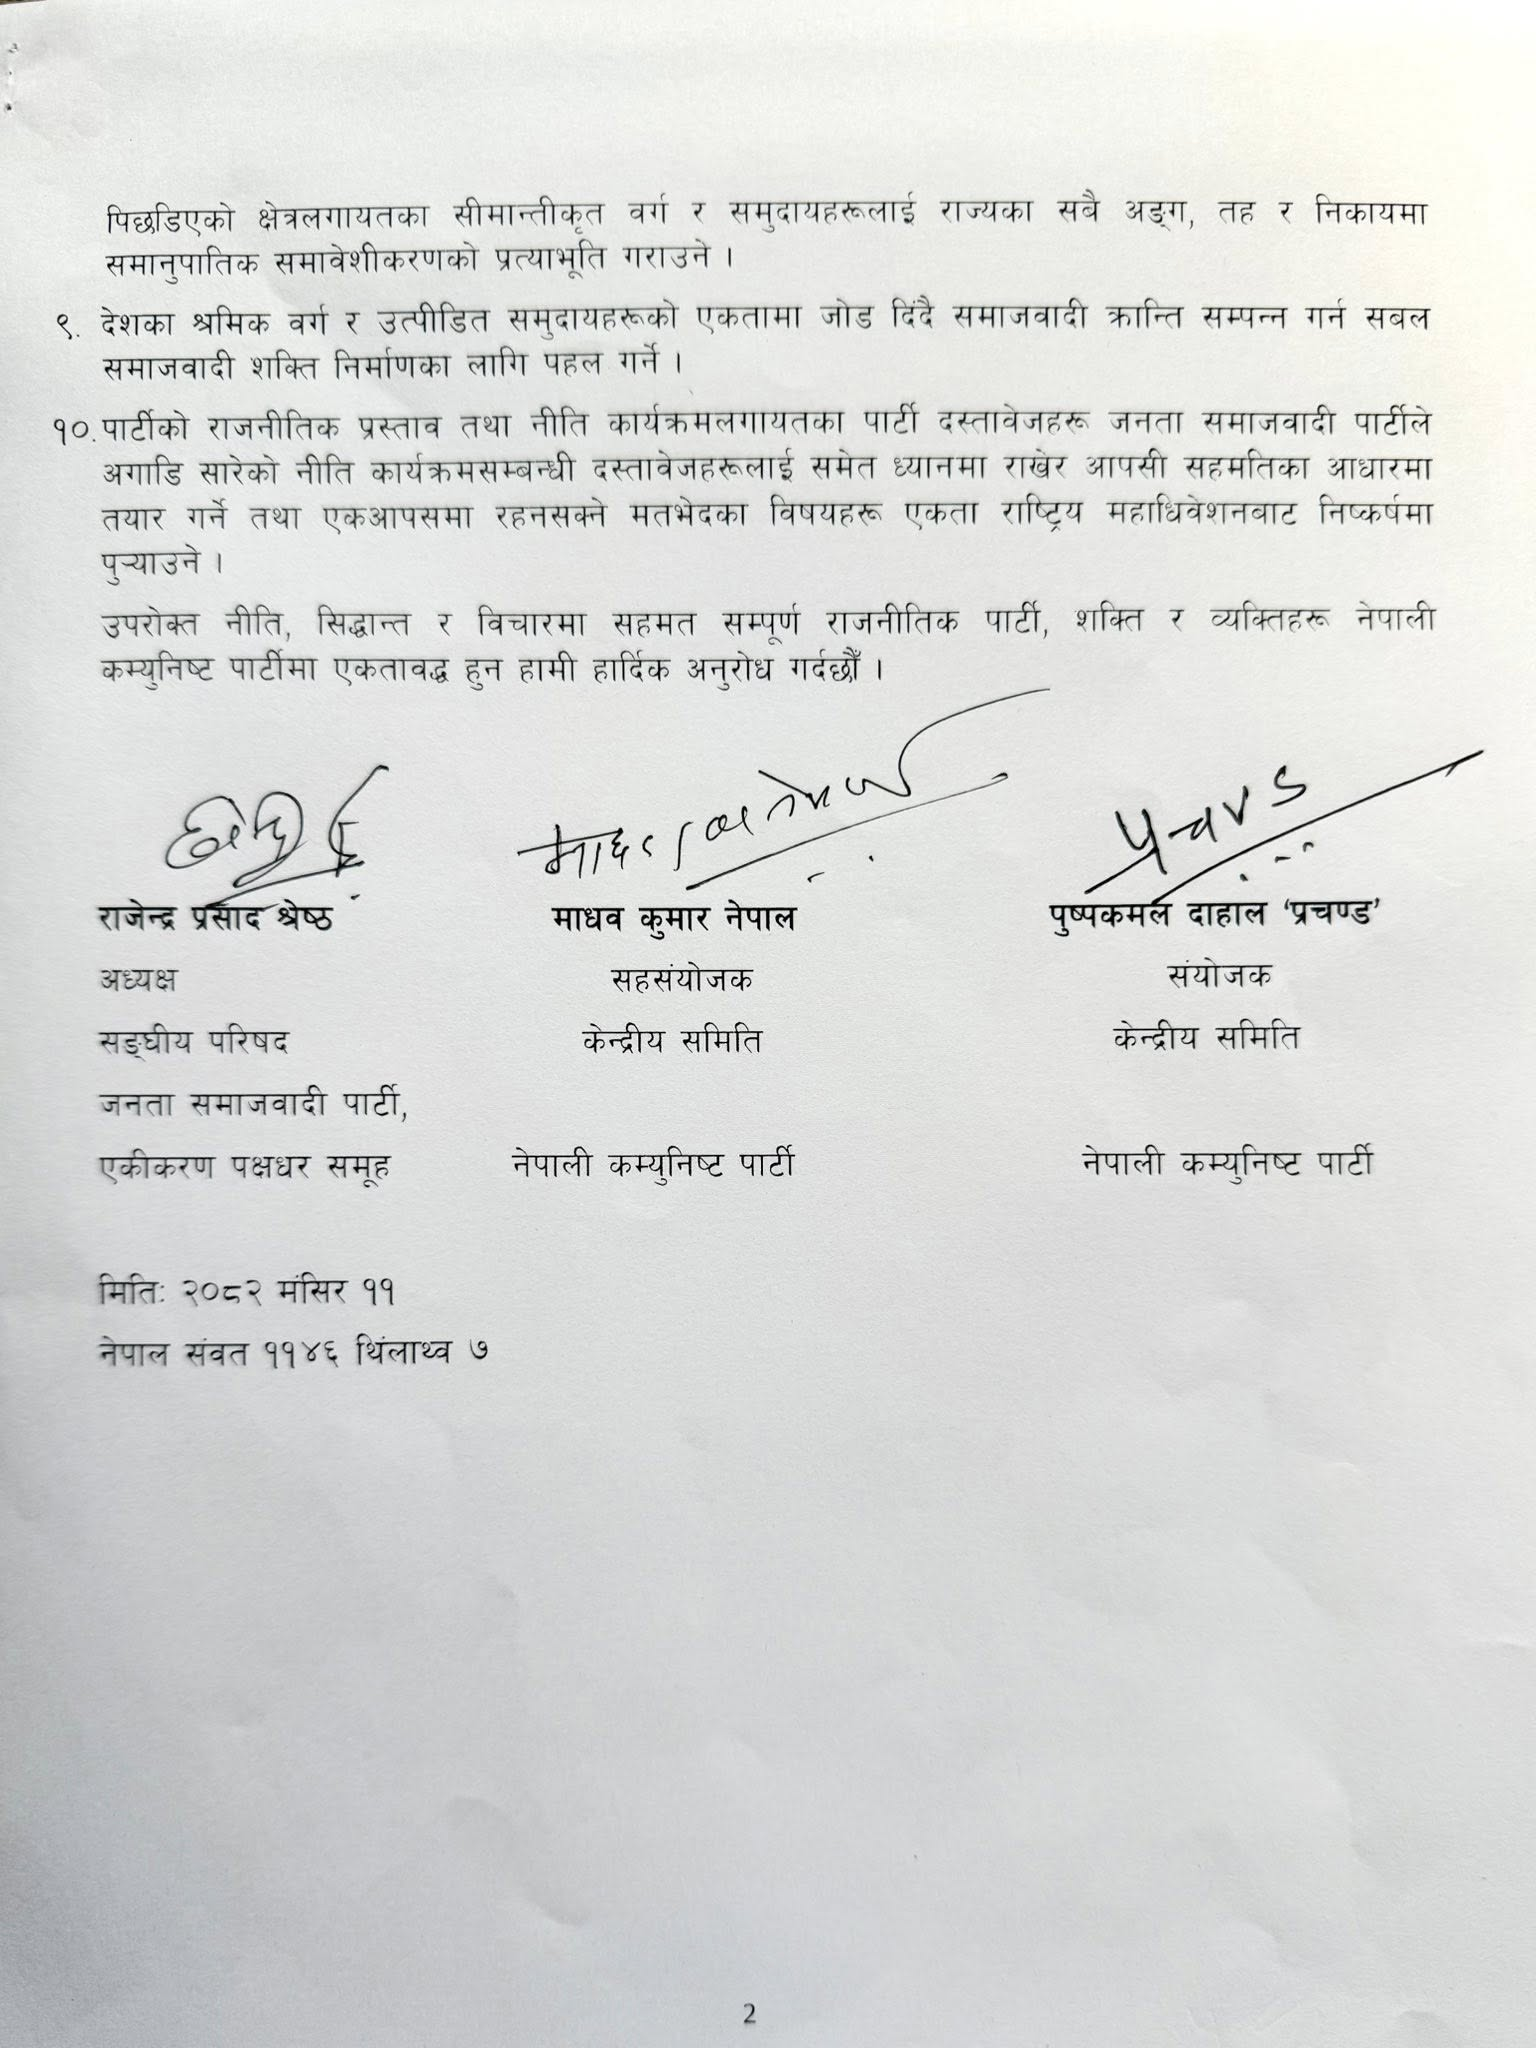 पिछडिएको क्षेत्रलगायतका सीमान्तीकृत वर्ग र समुदायहरूलाई राज्यका सबै अङ्ग, तह र निकायमा
समानुपातिक समावेशीकरणको प्रत्याभूति गराउने ।
९. देशका श्रमिक वर्ग र उत्पीडित समुदायहरूको एकतामा जोड दिंदै समाजवादी क्रान्ति सम्पन्न गर्न सबल
समाजवादी शक्ति निर्माणका लागि पहल गर्ने ।
१०. पार्टीको राजनीतिक प्रस्ताव तथा नीति कार्यक्रमलगायतका पार्टी दस्तावेजहरू जनता समाजवादी पार्टीले
अगाडि सारेको नीति कार्यक्रमसम्बन्धी दस्तावेजहरूलाई समेत ध्यानमा राखेर आपसी सहमतिका आधारमा
तयार गर्ने तथा एकआपसमा रहनसक्ने मतभेदका विषयहरू एकता राष्ट्रिय महाधिवेशनबाट निष्कर्षमा
पुऱ्याउने ।
उपरोक्त नीति, सिद्धान्त र विचारमा सहमत सम्पूर्ण राजनीतिक पार्टी, शक्ति र व्यक्तिहरू नेपाली
कम्युनिष्ट पार्टीमा एकतावद्ध हुन हामी हार्दिक अनुरोध गर्दछौँ ।
प्रचण्ड
राजेन्द्र प्रसाद श्रेष्ठ माधव कुमार नेपाल पुष्पकमल दाहाल ‘प्रचण्ड’
अध्यक्ष सहसंयोजक संयोजक
सङ्घीय परिषद केन्द्रीय समिति केन्द्रीय समिति
जनता समाजवादी पार्टी,
एकीकरण पक्षधर समूह नेपाली कम्युनिष्ट पार्टी नेपाली कम्युनिष्ट पार्टी
मितिः २०८२ मंसिर ११
नेपाल संवत ११४६ थिंलाथ्व ७
2